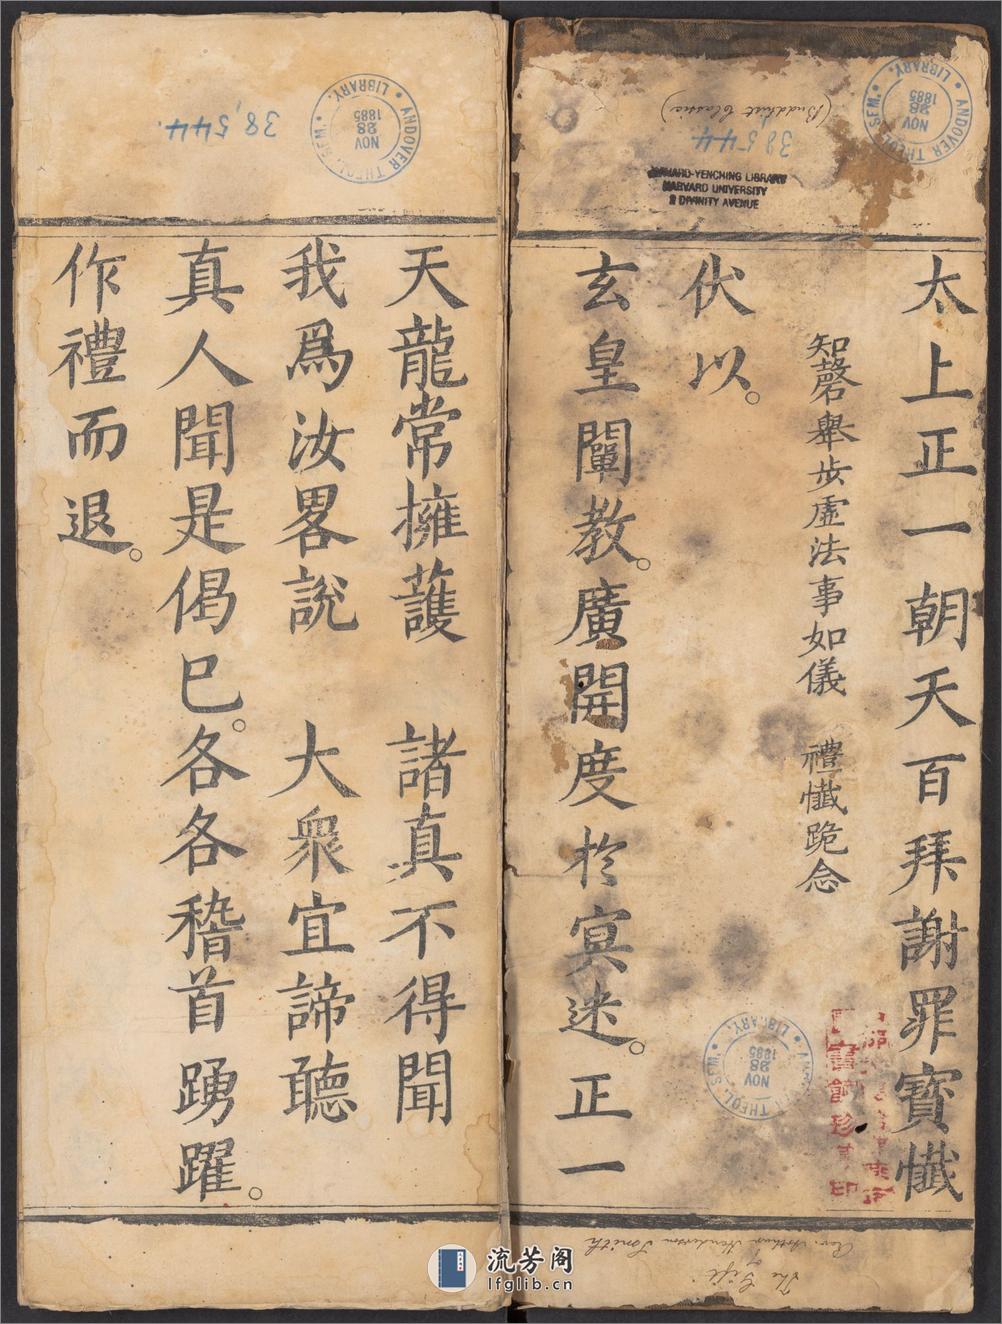 太上正一朝天百拜謝罪寶懺
知磬舉步虛法事如儀　禮懺跪念
伏以。
玄皇闡教。廣開度於冥迷。正一
天龍常擁護　諸真不得聞
我爲汝畧說　大衆宜諦聽
真人聞是偈已。各各稽首踴躍。
作禮而退。
(Buddhist Classic)
38544
HARVARD-YENCHING LIBRARY
HARVARD UNIVERSITY
2 DIVINITY AVENUE
ANDOVER THEOL. SEM. LIBRARY.
NOV
28
1885
38,544
ANDOVER THEOL. SEM. LIBRARY.
NOV
28
1885
ANDOVER THEOL. SEM. LIBRARY.
NOV
28
1885
The Gift of
Rev. Arthur Henderson Smith
流芳阁
lfglib.cn